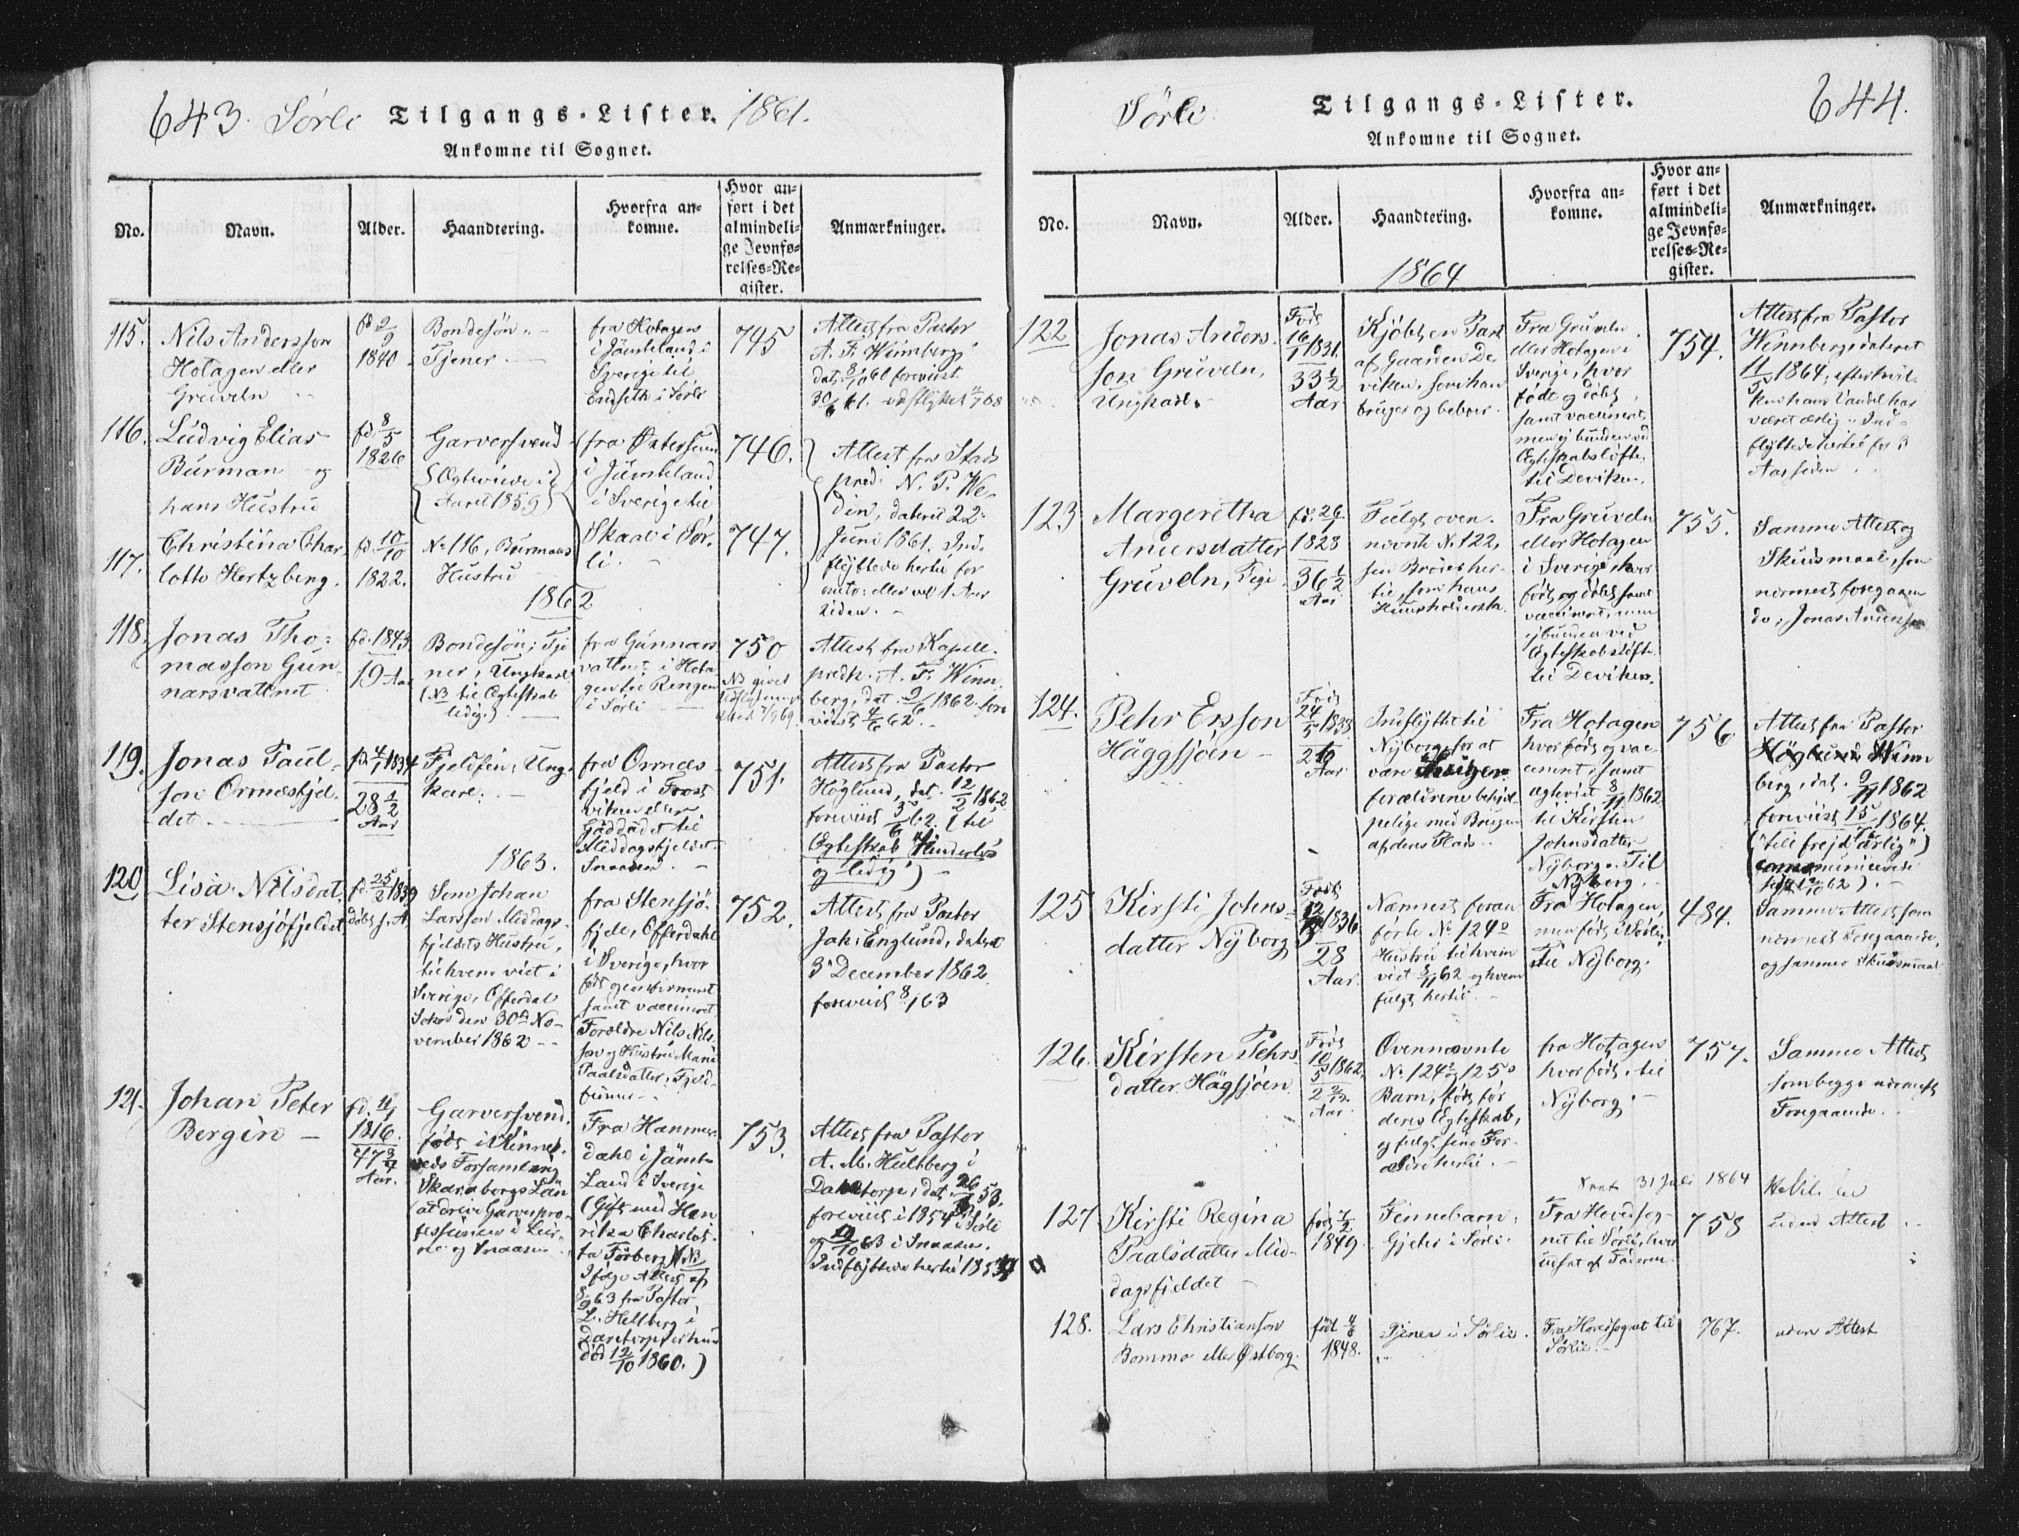 643. Sørli Tilgangs-Lister. 1861.
Ankomne til Sognet.
No.
Navn.
Alder.
Haandtering.
Hvorfra an-
komne.
Hvor an-
ført i det
almindeli-
ge Jevnfø-
relses-Re-
gister.
Anmærkninger.
115.
Nils Andersson
Hotagen eller
Gruveln
fd 2/9
1840
Bondesøn
Tjener
fra Hotagen
i Jämteland i
Sverige til
i Sørli
745
Attest fra Pastor
A. F. Winnberg
dat. 8/10 60 foreviist
30/6 61.
116.
Ludvig Elias
Burman og
hans Hustru
fd. 8/5
1826
Garversvend
(Ægteviede i
Aaret 1859)
fra Østersund
i Jämteland
i Sverige til
Skaal i Sør-
li.
746.
Attest fra Stads
præd. N. P. We-
din, dateret 22.
Juni 1861. Ind-
flyttede hertil for
eller vel 1 Aar
siden.
117.
Christina Char
lotte Hertzberg.
fd. 10/10
1822.
No 116, Burmans
Hustru
747.
1862
118.
Jonas Tho-
masson Gun-
narsvattnet
fd. 1843
19 Aar
Bondesøn; Tje
ner; Ungkarl
(NB til Ægteskab
ledig.)
fra Gunnars
vattnet i Hota
gen til Rengen
i Sørli
750
Attest fra Kapell-
predk. A. F. Winn-
berg, dat. 9/6 1862. fore
viist 4/6 62.
119.
Jonas Paul-
son Ormesfjel-
det.
fd. 4/1 1834
28 1/2
Aar
Fjeldfin; Ung-
karl.
fra Ormes
fjeld i Frost
viken eller
Gäddådet til
Middagsfjeldet
Snaasen.
751.
Attest fra Pastor
Höglund, dat. 12/2 1862
foreviist 3/6 62. (til
Ægteskab "Hinderløs
og ledig")
1863.
120.
Lisa Nilsdat-
ter Stensjöfjeldet
fd. 25/2 1839
døbt s. A.
Som Johan
Larsson Middags-
fjeldets Hustru,
til hvem viet i
Sverige, Offerdal
Sokn den 30te No-
vember 1862
fra Stensjö-
fjeld, Offerdahl
i Sverige, hvor
født og confirmeret
samt vaccineret.
Forældre Nils Nils-
son og Hustru Marie
Paalsdatter, Fjeld-
finner
752.
Attest fra Pastor
Jak: Englund, dateret
3 December 1862.
foreviist
121.
Johan Peter
Bergin
fd. 4/1
1816.
47 3/4
Aar.
Garversvend,
født i Kinne-
veds Forsamling
Skaraborgs Län
(at drive Garverpro-
fessionen i Lier-
ne og Snaasen
Fra Hammer-
dahl i Jämt-
Land i Sverige
(Gift med Hen
rika Charlot-
ta Forberg. NB
Ifølge Attest af
8/9 63 fra Pastor
L. Hellberg i
Daretorp er hun
død 12/10 1860.)
753.
Attest fra Pastor
A. M. Hultberg i
Daretorp, dat. 26/8 53.
foreviist i 1854 i Sørli
og 63 i Snaasen.
Indflyttede hertil 1853
Sørli. Tilgangs-Lister. 644.
Ankomne til Sognet.
No.
Navn.
Alder.
Haandtering.
Hvorfra an-
komne.
Hvor an-
ført i det
almindeli-
ge Jevnfø-
relses-Re-
gister.
Anmærkninger.
1864
122
Jonas Anders-
son Gruveln,
Ungkarl.
Født
16/1 1831.
33 1/2
Aar
Kjøbt en Part
af Gaarden De-
viken, som han
bruger og beboer.
Fra Gruveln
eller Hotagen i
Sverige, hvor
født og døbt
samt vaccineret,
men ej bunden ved
Ægteskabsløfte.
til Deviken.
754.
Attest fra Pastor
Winnberg, dateret
11/5 1864, efter hvil-
ken hans Vandel har
været ærlig. Ind-
flyttede hertil for 3
Aar siden.
123
Margeretha
Andersdatter
Gruveln, Pige
fd. 26/1
1828
36 1/2
Aar
Fulgt oven-
nævnte No 122,
sin Broder her-
til, som hans
Huusholderske.
Fra Gruveln
eller Hotagen
i Sverige, hvor
født og døbt samt
vaccineret, men
ej bunden ved
Ægteskabsløfte
til Deviken.
755.
Samme Attest og
Skudsmaal, som
nærmest foregaaen
de, Jonas Andersson
124.
Pehr Ersson
Häggsjöen
Født
24/5 1838
26
Aar
Indflyttet til
Nyborg, for at
være Sviger-
forældrene behjel-
pelige med Brugen
af deres Plads.
Fra Hotagen
hvor født og vac-
cineret, samt
ægteviet 8/11 1862
til Kirsten
Johnsdatter
Nyborg. Til
Nyborg.
756
Attest fra Pastor
Winn
berg, dat. 9/11 1862
foreviist 15/ 1864.
("till frejd ärlig")
125
Kirsti Johns-
datter Nyborg
Født
12/ 1836.
28
Aar.
Nærmest foran
førte No 124s
Hustru til hvem
viet 8/11 62 og hvem
fulgt hertil.
Fra Hotagen,
men født i Sørli,
til Nyborg.
484.
Samme Attest som
nærmest Foregaaende,
og samme Skudsmaal
126.
Kirsten Pehrs
datter Hägsjöen.
Født
10/5 1862
2 2/12
Aar.
Ovennævnte
No 124 og 125s
Barn, født før
deres Ægteskab,
og fulgt sine For-
ældre hertil.
fra Hotagen
hvor født, til
Nyborg.
757.
Samme Attest
som begge nærmest
Foregaaende.
31 Juli 1864
127
Kirsti Regina
Paalsdatter Mid-
dagsfjeldet
født 7/2
1849.
Finnebarn,
Gjeter i Sørli.
Fra Hovedsog-
net til Sørli, hvor
indsat af Faderen.
758
uden Attest.
128.
Lars Christianson
Bommo eller Østborg.
født 4/6
1848.
Tjener i Sørlie.
Fra Hovedsognet til
Sørlie.
767.
uden Attest